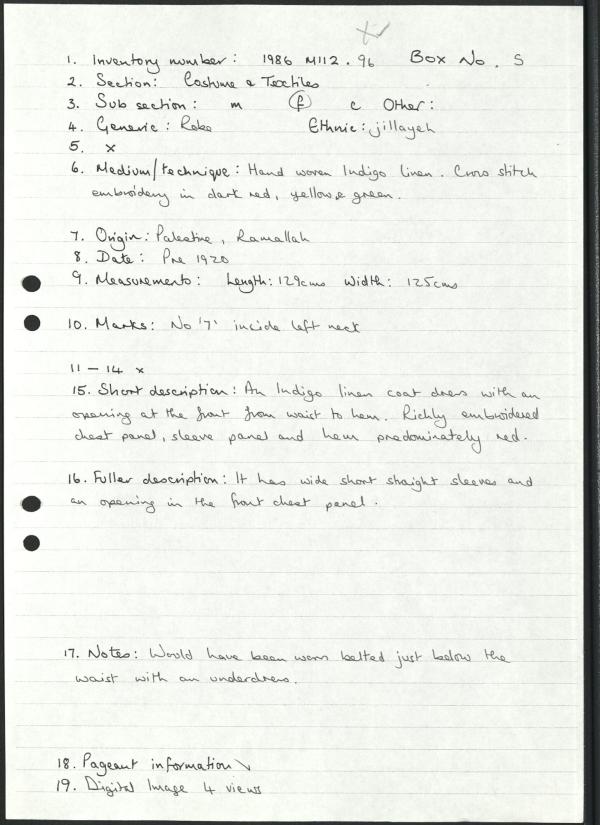 1. Inventory number: 1986 M112.96 Box No. S
2. Section: Costume & Textiles
3. Sub section: m f c Other:
4. Generic: Robe Ethnic: jillayeh
5. x
6. Medium/technique: Hand woven Indigo linen. Cross stitch
embroidery in dark red, yellow & green.
7. Origin: Palestine, Ramallah
8. Date: Pre 1920
9. Measurements: Length: 129cms Width: 125cms
10. Marks: No '7' incide left neck
11 – 14 x
15. Short description: An Indigo linen coat dress with an
opening at the front from waist to hem. Richly embroidered
chest panel, sleeve panel and hem predominately red.
16. Fuller description: It has wide short straight sleeves and
an opening in the front chest panel.
17. Notes: Would have been worn belted just below the
waist with an underdress.
18. Pageant information \
19. Digital Image 4 views